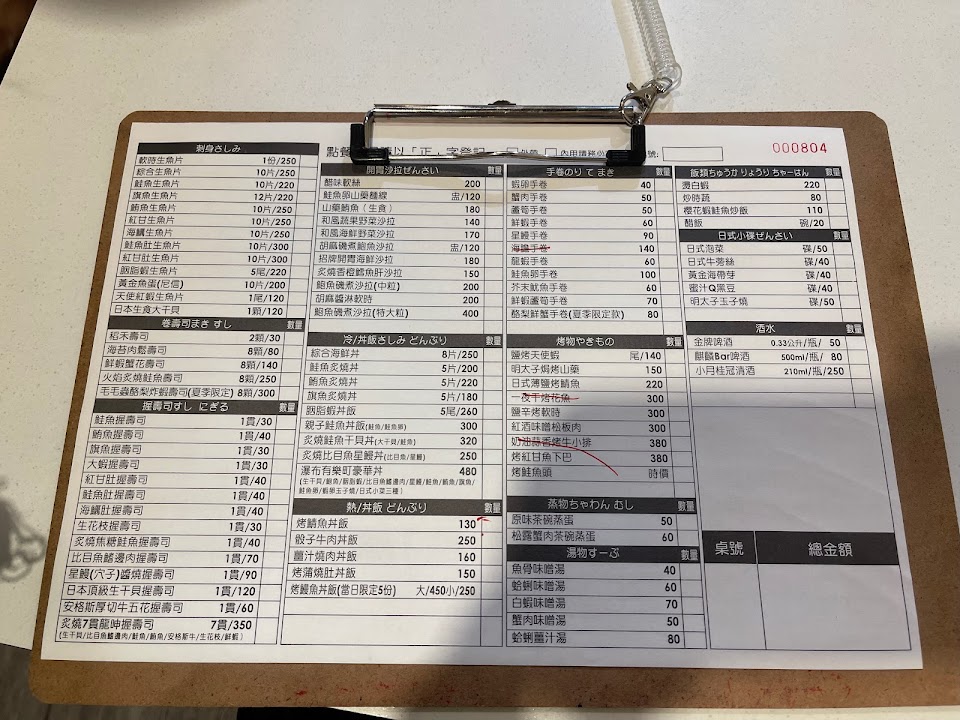 點餐
以「正」字登記
外帶
內用請務必
號:
000804
刺身さしみ
軟時生魚片 1份/250
綜合生魚片 10片/250
鮭魚生魚片 10片/220
旗魚生魚片 12片/220
鮪魚生魚片 10片/250
紅甘生魚片 10片/250
海鱺生魚片 10片/250
鮭魚肚生魚片 10片/300
紅甘肚生魚片 10片/300
胭脂蝦生魚片 5尾/220
黃金魚蛋(尼信) 10片/200
天使紅蝦生魚片 1尾/120
日本生食大干貝 1顆/120
卷壽司まき すし 數量
稻禾壽司 2顆/30
海苔肉鬆壽司 8顆/80
鮮蝦蟹花壽司 8顆/140
火焰炙燒鮭魚壽司 8顆/250
毛毛蟲酪梨炸蝦壽司(夏季限定) 8顆/300
握壽司すし にぎる 數量
鮭魚握壽司 1貫/30
鮪魚握壽司 1貫/40
旗魚握壽司 1貫/30
大蝦握壽司 1貫/30
紅甘肚握壽司 1貫/40
鮭魚肚握壽司 1貫/40
海鱺肚握壽司 1貫/40
生花枝握壽司 1貫/30
炙燒焦糖鮭魚握壽司 1貫/40
比目魚鰭邊肉握壽司 1貫/70
星鰻(穴子)醬燒握壽司 1貫/90
日本頂級生干貝握壽司 1貫/120
安格斯厚切牛五花握壽司 1貫/60
炙燒7貫龍呷握壽司 7貫/350
(生干貝/比目魚鰭邊肉/鮭魚/鮪魚/安格斯牛/生花枝/鮮蝦)
開胃沙拉ぜんさい 數量
醋味軟絲 200
鮭魚卵山藥麵線 盅/120
山藥鮪魚(生食) 180
和風蔬果野菜沙拉 140
和風海鮮野菜沙拉 170
胡麻磯煮鮑魚沙拉 盅/120
招牌開胃海鮮沙拉 180
炙燒香橙鱈魚肝沙拉 150
鮑魚磯煮沙拉(中粒) 200
胡麻醬淋軟時 200
鮑魚磯煮沙拉(特大粒) 400
冷/丼飯さしみ どんぶり 數量
綜合海鮮丼 8片/250
鮭魚炙燒丼 5片/200
鮪魚炙燒丼 5片/220
旗魚炙燒丼 5片/180
胭脂蝦丼飯 5尾/260
親子鮭魚丼飯(鮭魚/鮭魚卵) 300
炙燒鮭魚干貝丼(大干貝/鮭魚) 320
炙燒比目魚星鰻丼(比目魚/星鰻) 250
瀑布有樂町豪華丼 480
(生干貝/鮑魚/胭脂蝦/比目魚鰭邊肉/星鰻/鮭魚/鮪魚/旗魚/
鮭魚卵/蝦卵玉子燒/日式小菜三種)
熱/丼飯 どんぶり 數量
烤鯖魚丼飯 130
骰子牛肉丼飯 250
薑汁燒肉丼飯 160
烤蒲燒肚丼飯 150
烤鰻魚丼飯(當日限定5份) 大/450小/250
手卷のり て まき 數量
蝦卵手卷 40
蟹肉手卷 50
蘆筍手卷 50
鮮蝦手卷 60
星鰻手卷 90
海膽手卷 140
龍蝦手卷 60
鮭魚卵手卷 100
芥末魷魚手卷 60
鮮蝦蘆筍手卷 70
酪梨鮮蟹手卷(夏季限定款) 80
烤物やきもの 數量
鹽烤天使蝦 尾/140
明太子焗烤山藥 150
日式薄鹽烤鯖魚 220
一夜干烤花魚 300
鹽辛烤軟時 300
紅酒味噌松板肉 300
奶油蒜香烤牛小排 380
烤紅甘魚下巴 380
烤鮭魚頭 時價
蒸物ちゃわん むし
原味茶碗蒸蛋 50
松露蟹肉茶碗蒸蛋 60
湯物すーぷ 數量
魚骨味噌湯 40
蛤蜊味噌湯 60
白蝦味噌湯 70
蟹肉味噌湯 50
蛤蜊薑汁湯 80
飯類ちゅうか りょうり ちゃーはん 數量
燙白蝦 220
炒時蔬 80
櫻花蝦鮭魚炒飯 110
醋飯 碗/20
日式小碟ぜんさい 數量
日式泡菜 碟/50
日式牛蒡絲 碟/40
黃金海帶芽 碟/40
蜜汁Q黑豆 碟/40
明太子玉子燒 碟/50
酒水 數量
金牌啤酒 0.33公升/瓶/ 50
麒麟Bar啤酒 500ml/瓶/ 80
小月桂冠清酒 210ml/瓶/250
桌號
總金額